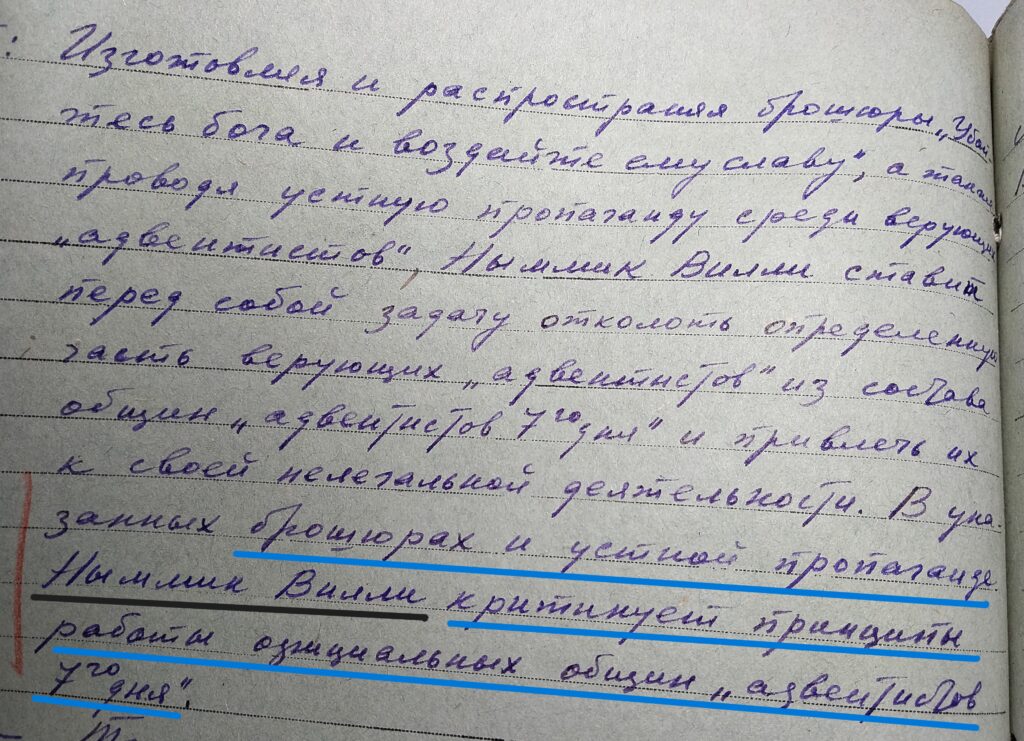 Изготовляя и распространяя брошюры „Убой-
тесь бога и воздайте ему славу“, а также
проводя устную пропаганду среди верующих
„адвентистов“, Ныммик Вилли ставит
перед собой задачу отколоть определенную
часть верующих „адвентистов“ из состава
общин „адвентистов 7го дня“ и привлечь их
к своей нелегальной деятельности. В ука-
занных брошюрах и устной пропаганде
Ныммик Вилли критикует принципы
работы официальных общин „адвентистов
7го дня“.